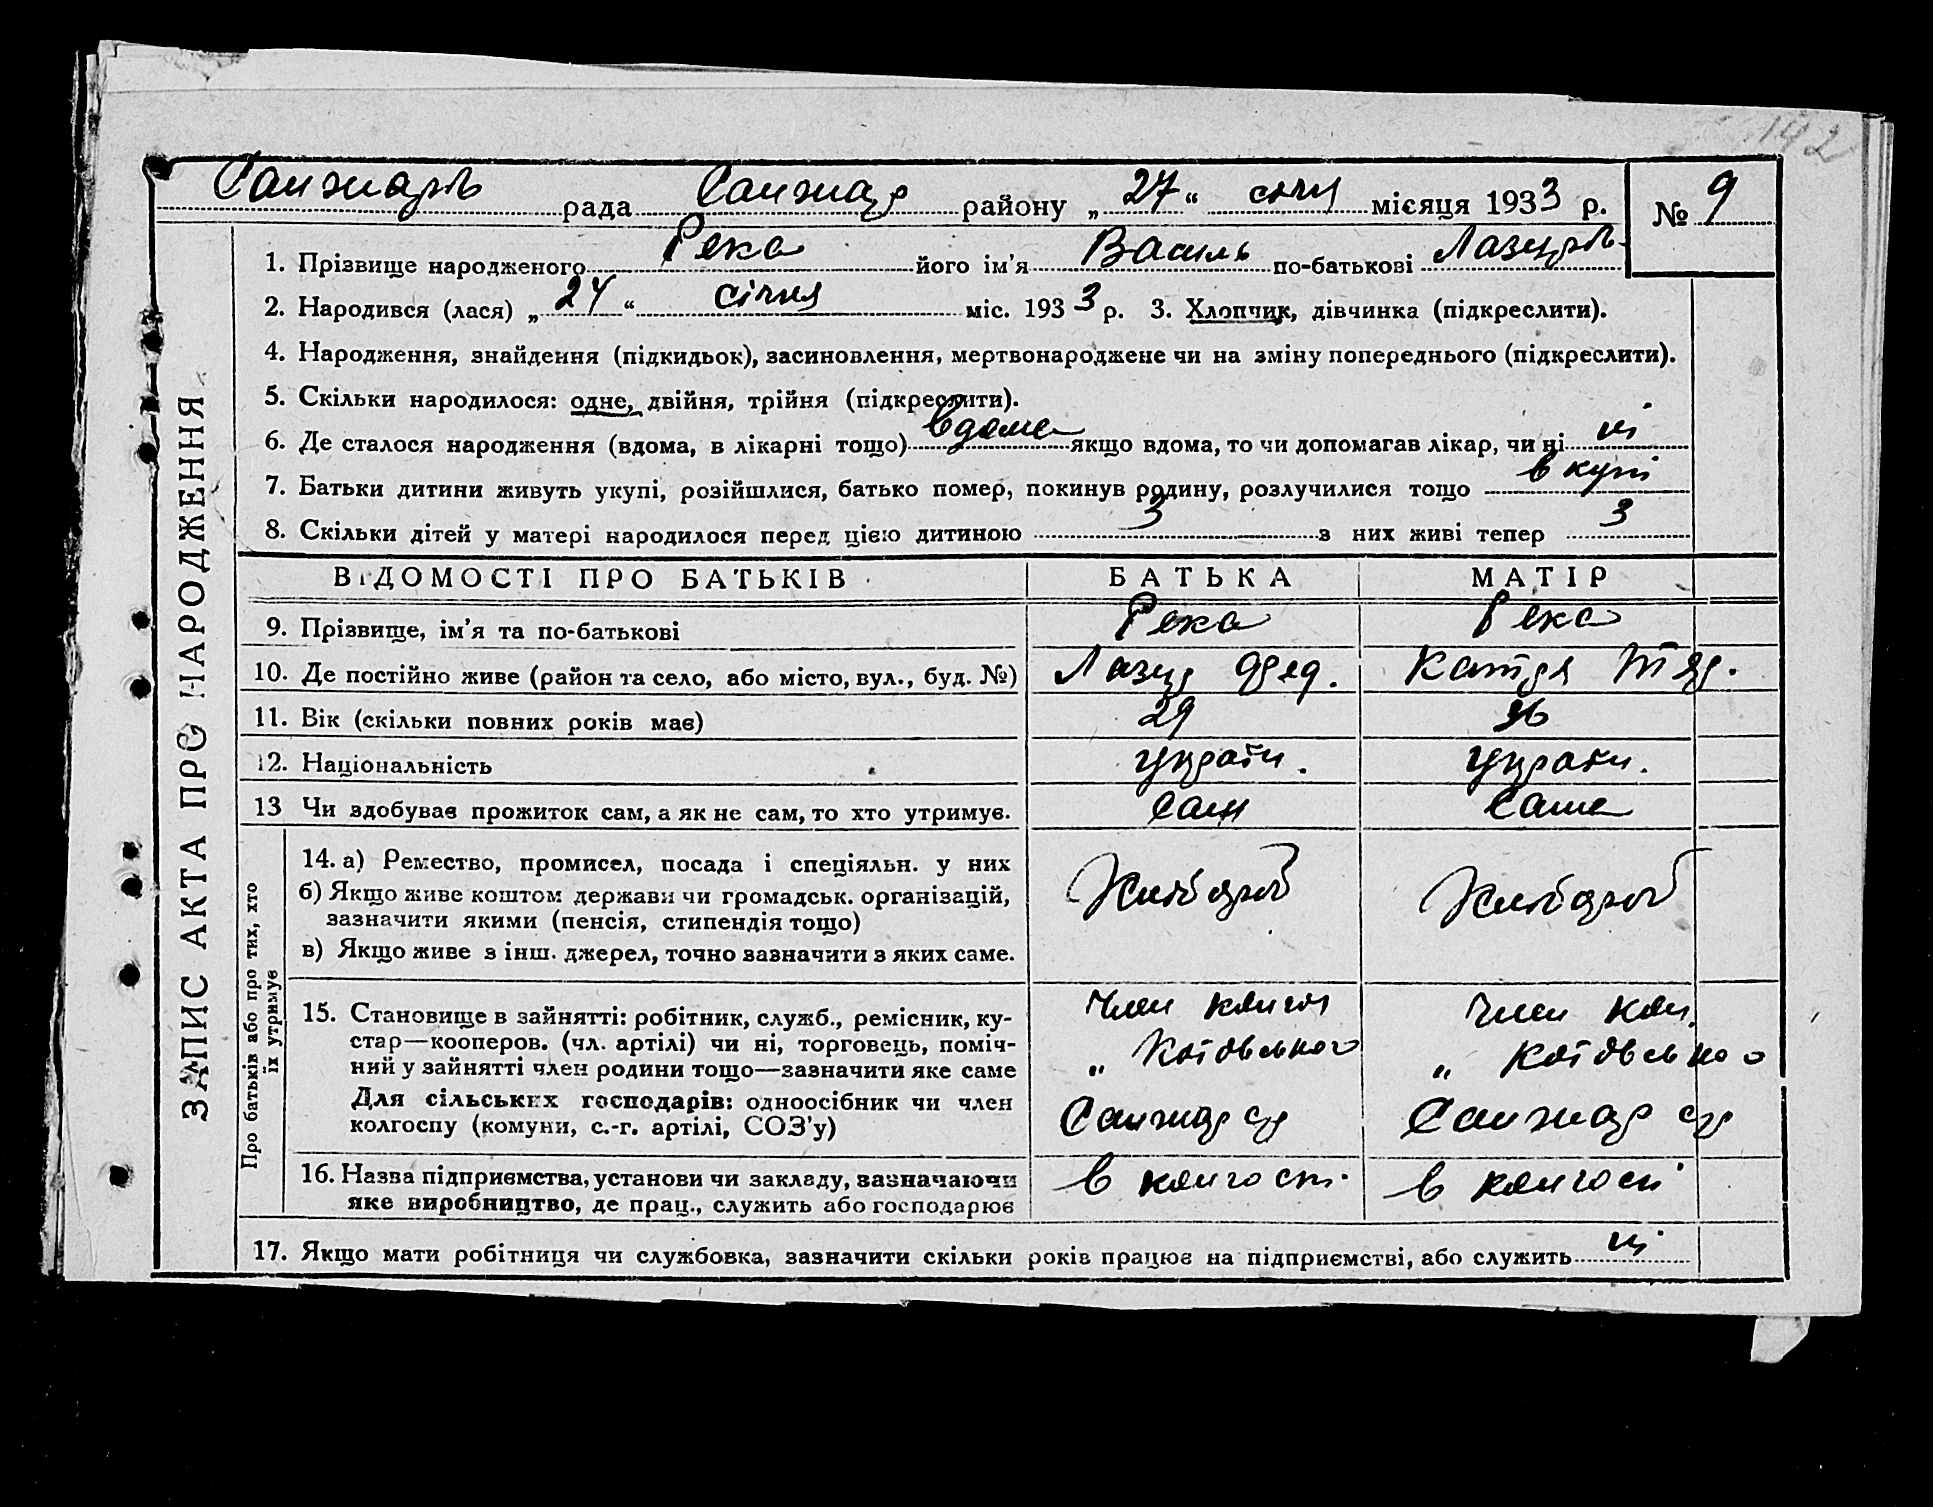 142
Санжарів рада Санжар району „ 27 “ січня місяця 1933 р. № 9
1. Прізвище народженого Река його ім’я Василь по-батькові Лазарів
2. Народився (лася) „ 24 “ січня міс. 1933 р. 3. Хлопчик, дівчинка (підкреслити).
4. Народження, знайдення (підкидьок), засиновлення, мертвонароджене чи на зміну попереднього (підкреслити).
5. Скільки народилося: одне, двійня, трійня (підкреслити).
6. Де сталося народження (вдома, в лікарні тощо) вдома якщо вдома, то чи допомагав лікар, чи ні ні
7. Батьки дитини живуть укупі, розійшлися, батько помер, покинув родину, розлучилися тощо вкупі
8. Скільки дітей у матері народилося перед цією дитиною 3 з них живі тепер 3
ЗАПИС АКТА ПРО НАРОДЖЕННЯ
ВІДОМОСТІ ПРО БАТЬКІВ БАТЬКА МАТІР
9. Прізвище, ім’я та по-батькові Река Река
10. Де постійно живе (район та село, або місто, вул., буд. №) Лазар
11. Вік (скільки повних років має) 29
12. Національність украін. украін.
13 Чи здобуває прожиток сам, а як не сам, то хто утримує. Сам Сама
Про батьків або про тих, хто їх утримує
14. а) Ремество, промисел, посада і спеціяльн. у них
б) Якщо живе коштом держави чи громадськ. організацій,
зазначити якими (пенсія, стипендія тощо)
в) Якщо живе з інш. джерел, точно зазначити з яких саме.
Хлібороб Хлібороб
15. Становище в зайнятті: робітник, служб., ремісник, ку-
стар—кооперов. (чл. артілі) чи ні, торговець, поміч-
ний у зайнятті член родини тощо—зазначити яке саме
Для сільських господарів: одноосібник чи член
колгоспу (комуни, с.-г. артілі, СОЗ’у)
Член Член
„ Котовського „ Котовського
Санжар Санжар
16. Назва підприємства, установи чи закладу, зазначаючи
яке виробництво, де прац., служить або господарює
в колгоспі в колгоспі
17. Якщо мати робітниця чи службовка, зазначити скільки років працює на підприємстві, або служить ні